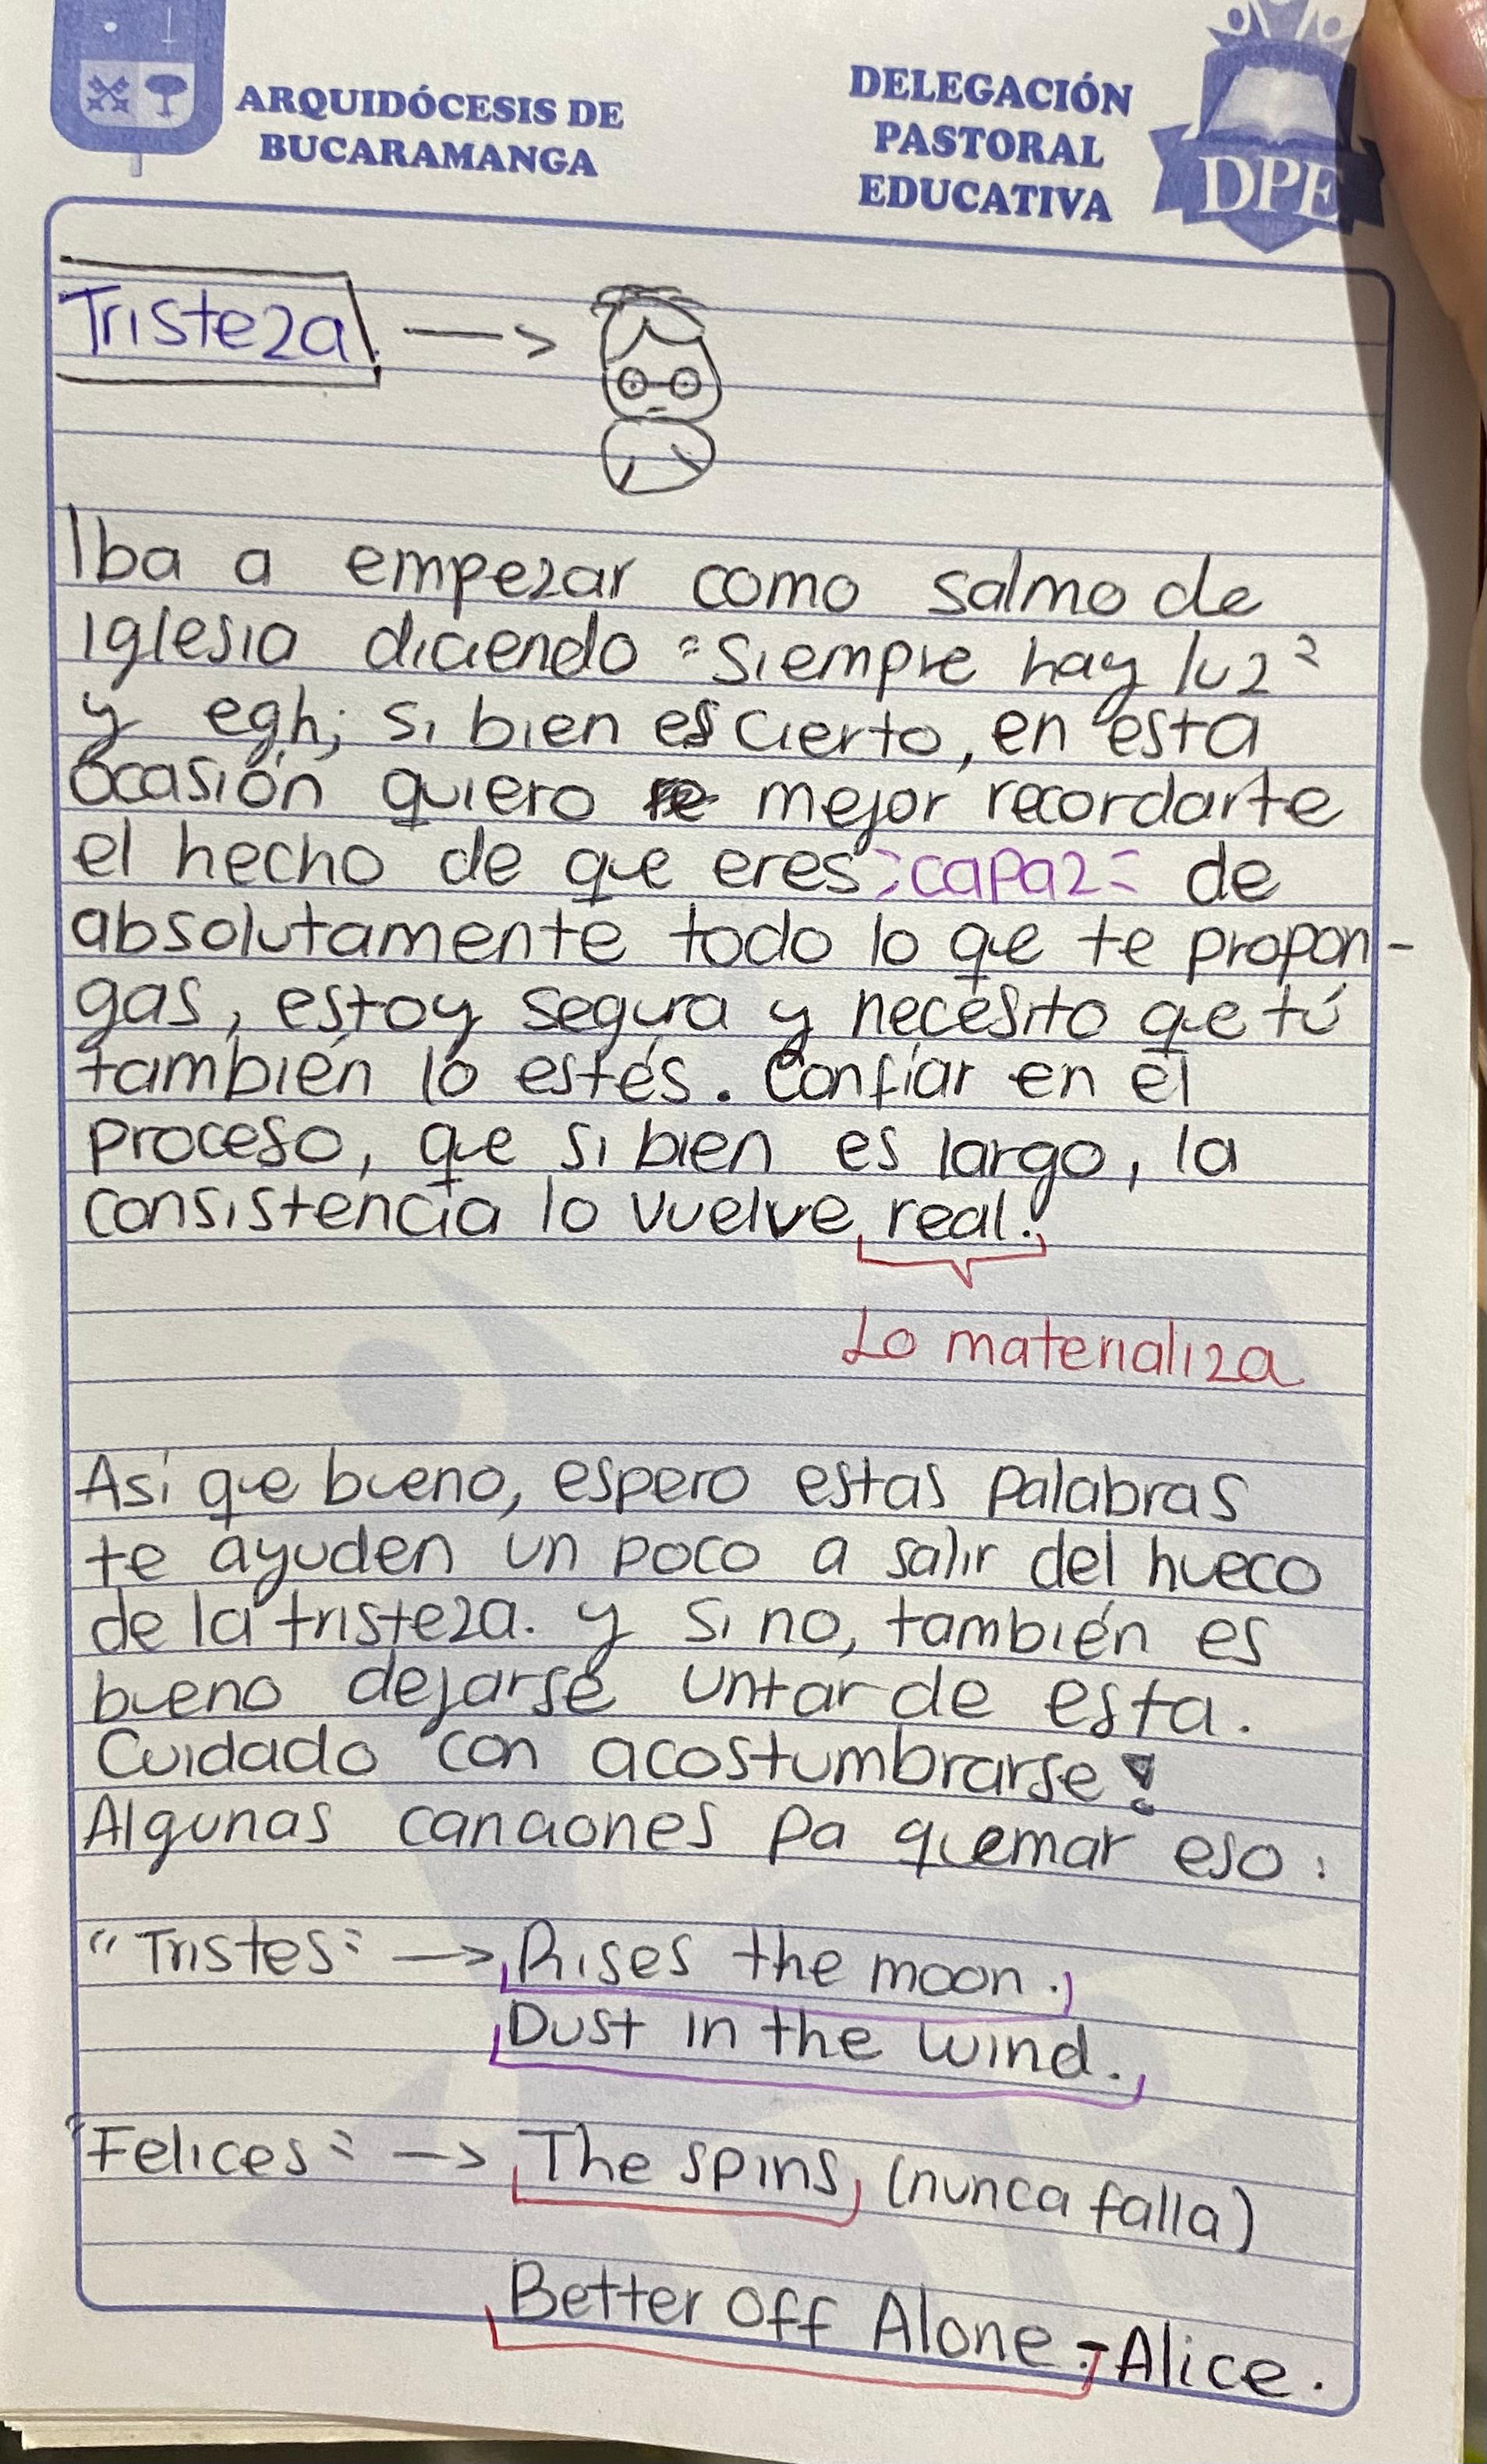 ARQUIDÓCESIS DE
BUCARAMANGA
DELEGACIÓN
PASTORAL
EDUCATIVA
DPE
Tristeza! —>
Iba a empezar como salmo de
iglesia diciendo "Siempre hay luz"
y egh; si bien es cierto, en esta
ocasión quiero mejor recordarte
el hecho de que eres "capaz" de
absolutamente todo lo que te propon-
gas, estoy segura y necesito que tú
también lo estés. Confiar en el
proceso, que si bien es largo, la
consistencia lo vuelve real.
Lo materializa
Así que bueno, espero estas palabras
te ayuden un poco a salir del hueco
de la tristeza. y si no, también es
bueno dejarse untar de esta.
Cuidado con acostumbrarse!
Algunas canciones pa quemar eso:
"Tristes" —> Rises the moon.
Dust in the wind.
"Felices" —> The spins (nunca falla)
Better Off Alone. - Alice.